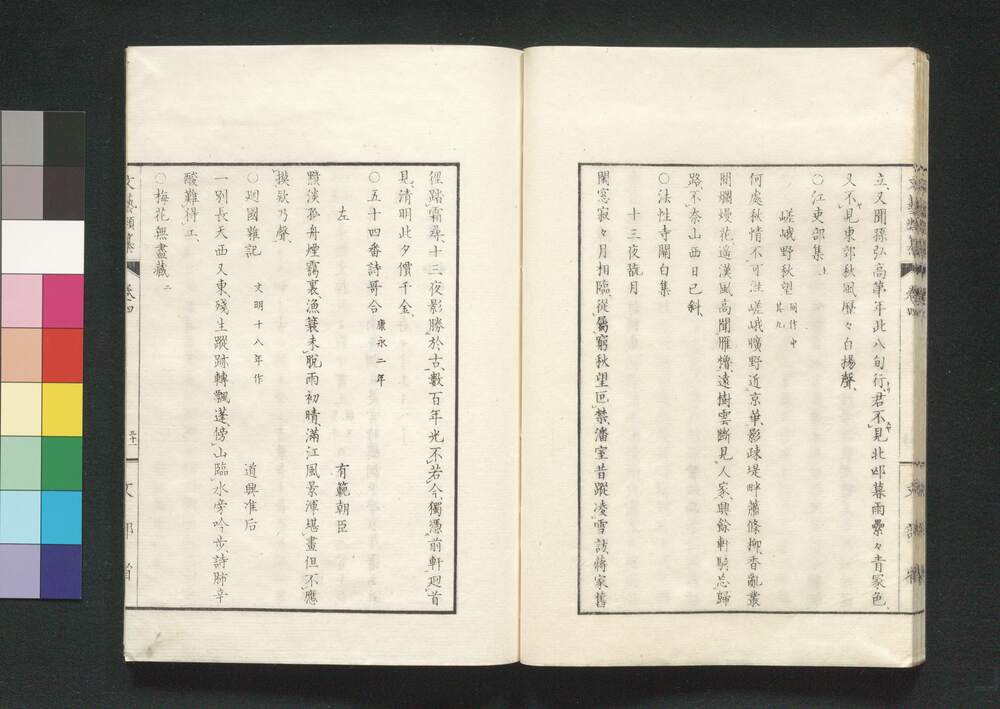 立又聞孫弘高第年此八旬行君不見北邙暮雨壘々青冢色
又不見東郊秋風歷々白揚聲
○江吏部集上
嵯峨野秋望
何處秋情不可涯嵯峨曠野近京華影疎堤畔蕭條柳香亂叢
間爛熳花遥漢風高聞雁櫓遠樹雲斷見人家興餘軒騎忘歸
路不奈山西日已斜
○法性寺關白集
十三夜翫月
閑窓寂々月相臨從屬窮秋望叵禁潘室昔蹤凌雪訪蔣家舊
徑踏霜尋十三夜影勝於古數百年光不若今獨憑前軒廻首
見清明此夕價千金
○五十四番詩哥合 康永二年
左 有範朝臣
黯淡孤舟煙靄裏漁蓑未脫雨初晴滿江風景渾堪畫但不應
摸欸乃聲
○廻國雜記 文明十八年作 道興准后
一別長天西又東殘生蹤跡轉飄蓬傍山臨水旁吟步詩肺辛
酸難得工
○梅花無盡藏二
文藝類纂 卷四 三十一 文部省